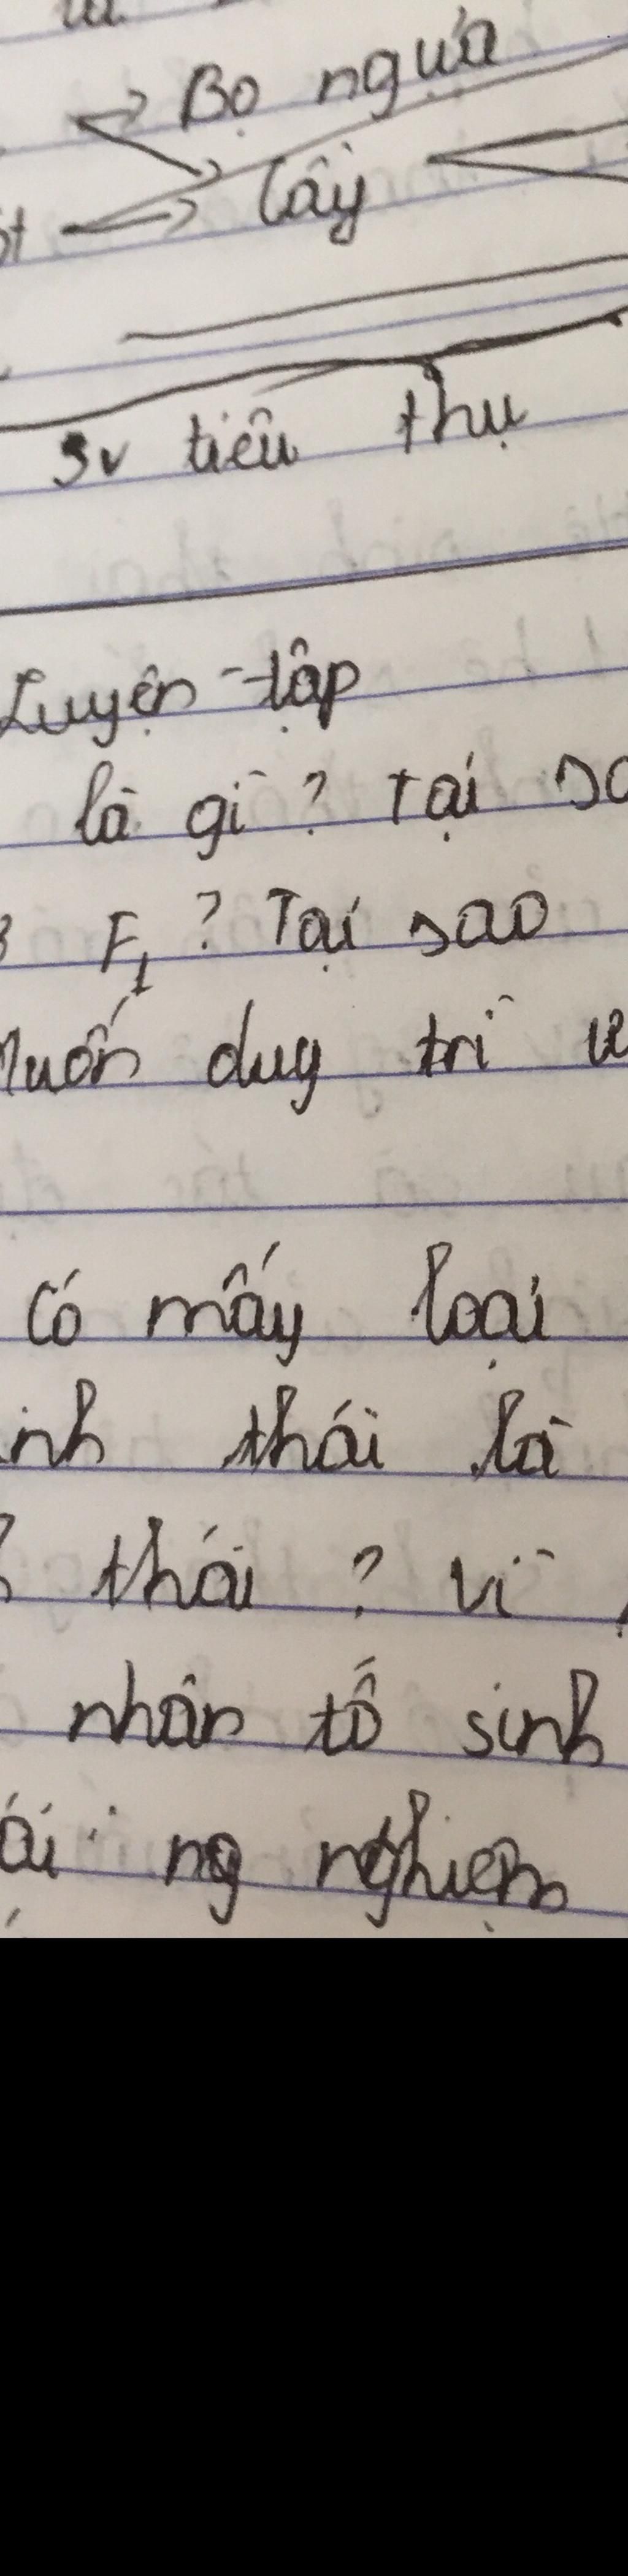 Bọ ngựa
Cầy
SV tiêu thụ
Luyện tập
là gì? Tại
F1? Tại sao
Muốn duy trì
Có mấy loại
thái là
thái? Vì
nhân tố sinh
ng nghiệm